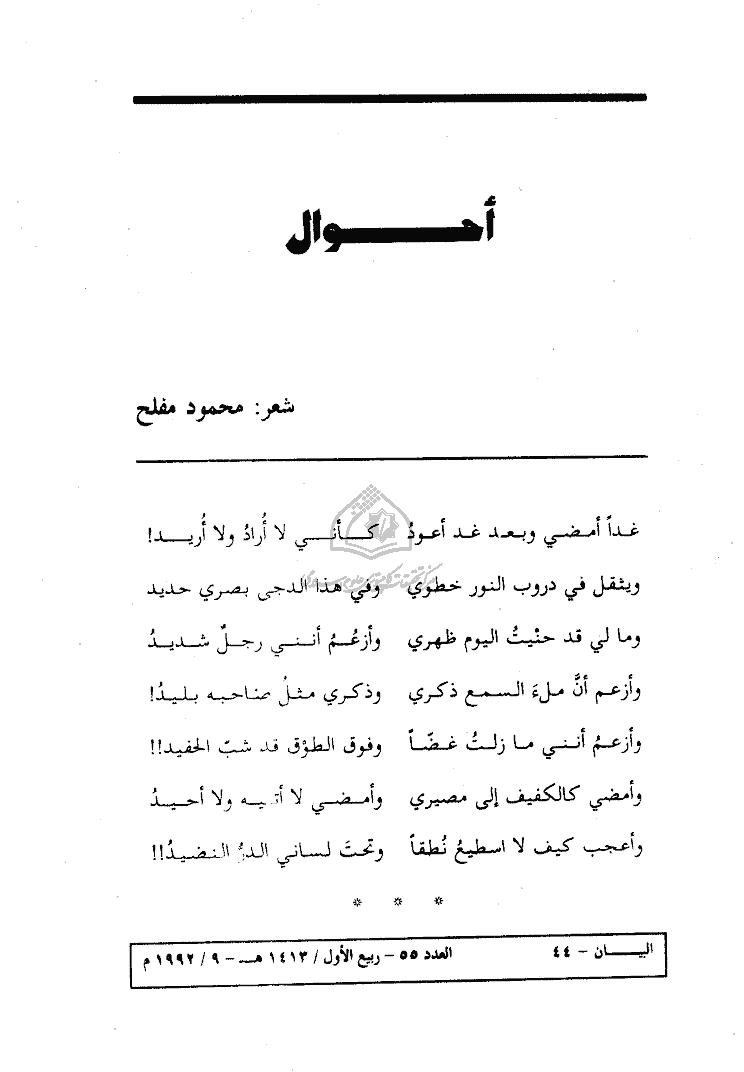 أحـــوال
شعر: محمود مفلح
غـداً أمضـي وبـعـد غـد أعـودُ كــأنــي لا أُرادُ ولا أُريــد!
ويثقل في دروب النور خطوي وفي هذا الدجى بصري حديد
وما لي قد حنْيتُ اليوم ظهري وأزعُــمُ أنـنـي رجـلٌ شـديـدُ
وأزعـم أنَّ مـلءَ الـسـمـع ذكـري وذكـري مـثـلُ صـاحـبـه بـلـيـدُ!
وأزعـمُ أنـنـي مـا زلـتُ غـضّـاً وفـوق الـطوْق قـد شـبّ الحـفيـد!!
وأمضي كالكفيف إلى مصيري وأمـضـي لا أتـيـه ولا أحـيـدُ
وأعـجـب كـيـف لا اسطيعُ نُـطقـاً وتحتَ لـسـاني الـدرُّ الـنـضـيـدُ!!
* * *
البيـــان – ٤٤ العدد ٥٥ – ربيع الأول / ١٤١٣ هـ – ٩ / ١٩٩٢ م